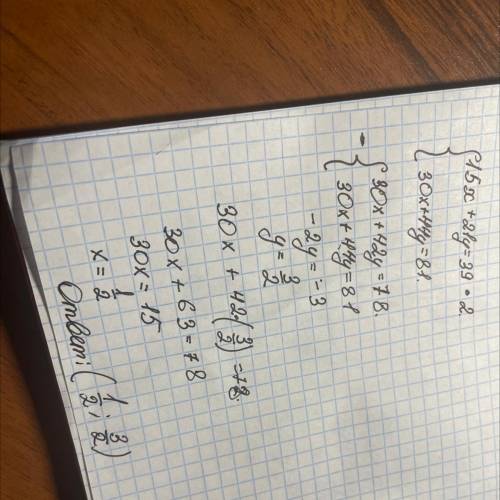 { 15x + 21y = 39 · 2
{ 30x + 44y = 81.
- { 30x + 42y = 78.
{ 30x + 44y = 81
-2y = -3
y = 3/2
30x + 42·(3/2) = 78.
30x + 63 = 78
30x = 15
x = 1/2
Ответ: (1/2; 3/2)